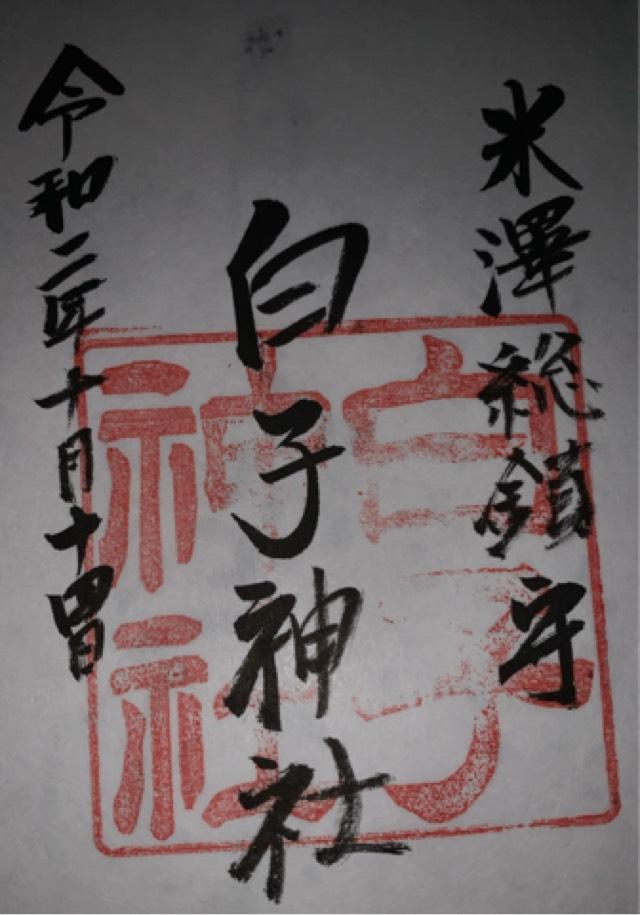 米澤総鎮守
白子神社
令和二年十月十四日
白子
神社